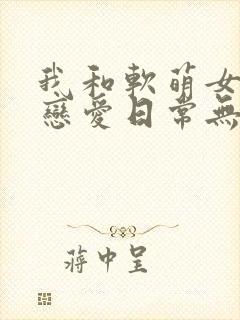 我和軟萌女
戀愛日常無
蔣中呈